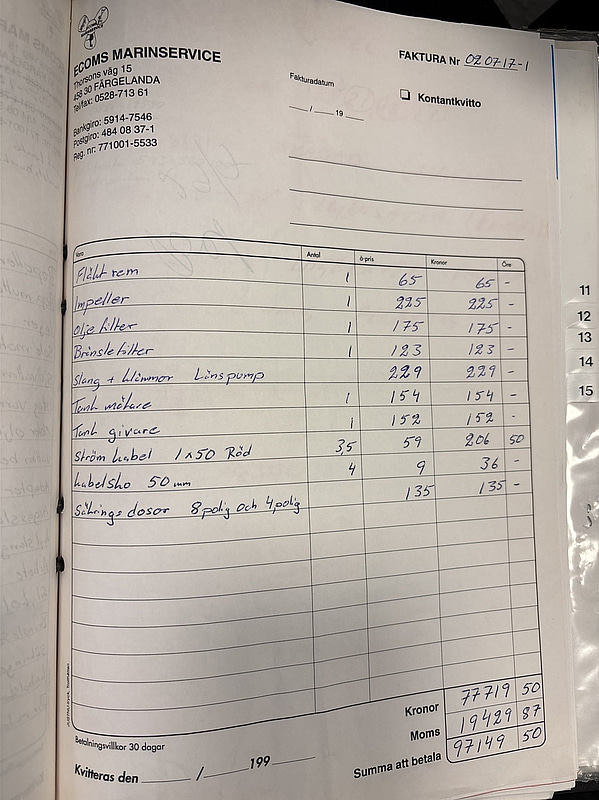 ECOMS MARINSERVICE
Thorsons väg 15
458 30 FÄRGELANDA
Tel/fax: 0528-713 61
Bankgiro: 5914-7546
Postgiro: 484 08 37-1
Reg. nr: 771001-5533
FAKTURA Nr 020717-1
Fakturadatum
Kontantkvitto
/ 19
Vara Antal à-pris Kronor Öre
Fläkt rem 1 65 65 -
Impeller 1 225 225 -
Olje filter 1 175 175 -
Bränslefilter 1 123 123 -
Slang + klämmor Länspump 229 229 -
Tank mätare 1 154 154 -
Tank givare 1 152 152 -
Ström kabel 1x50 Röd 35 59 206 50
kabelsko 50 mm 4 9 36 -
Säkrings dosor 8 polig och 4 polig 135 135 -
Kronor 77719 50
Moms 19429 87
Summa att betala 97149 50
Betalningsvillkor 30 dagar
Kvitteras den / 199
11
12
13
14
15